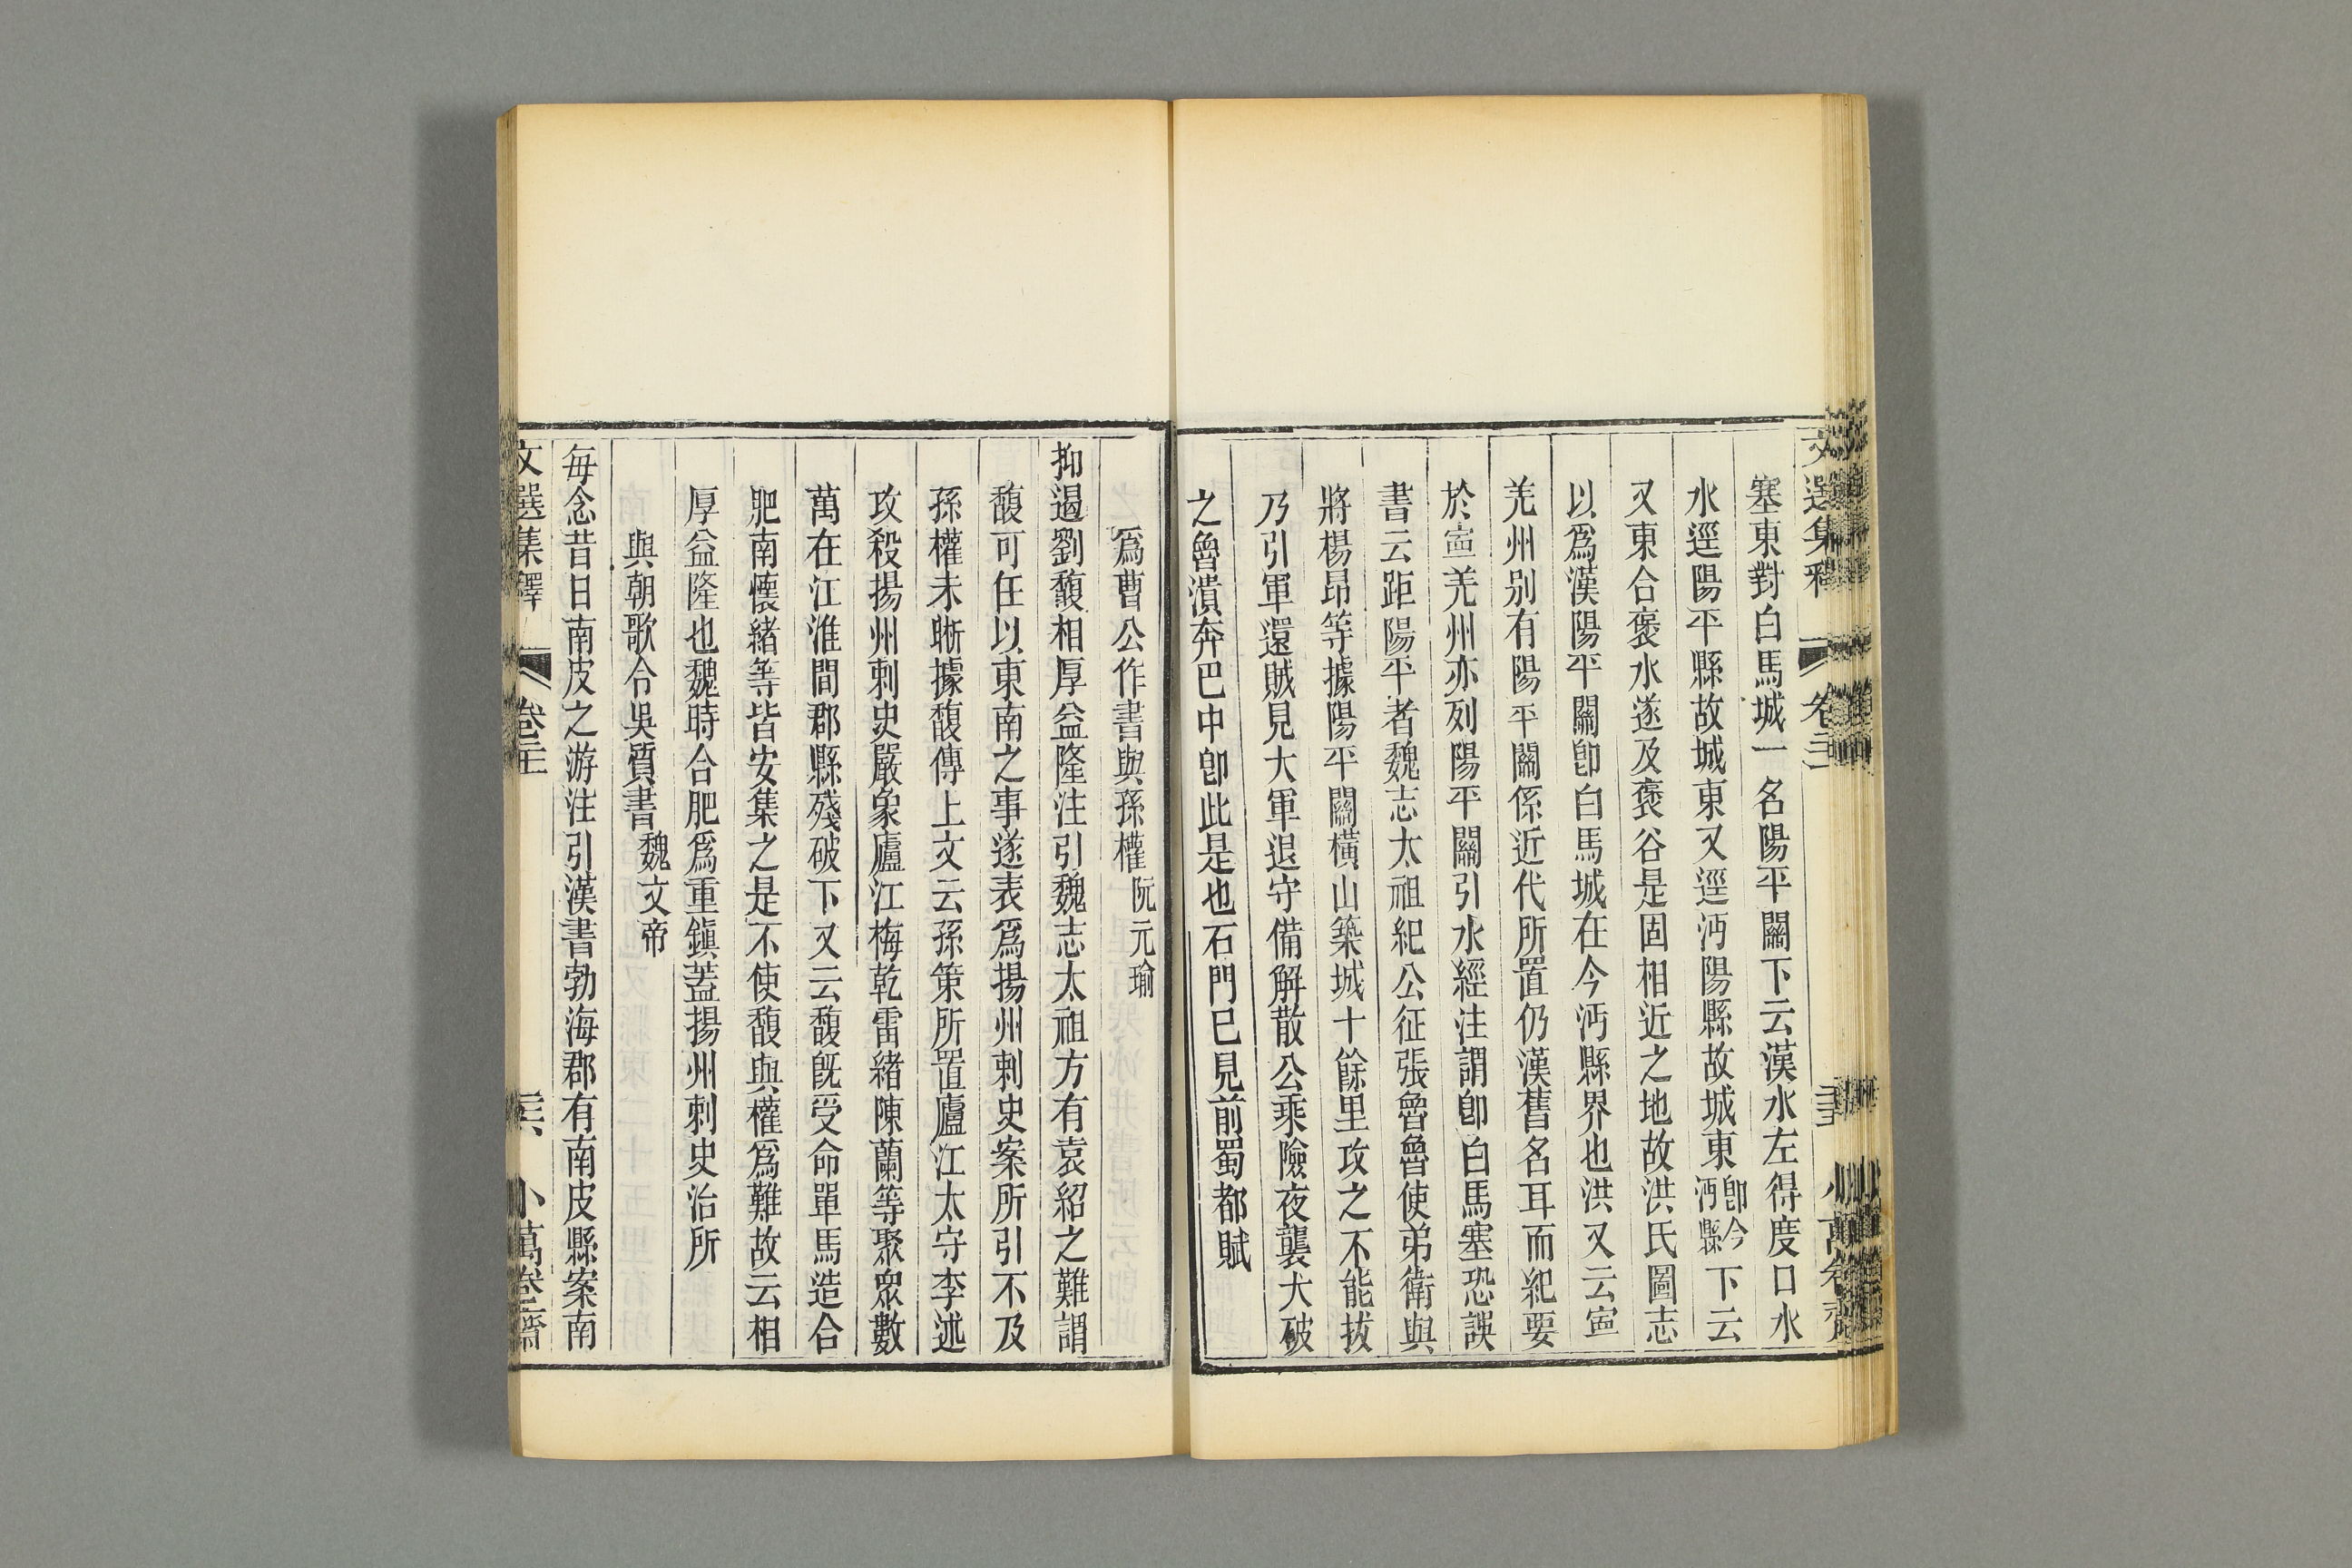 塞東對白馬城一名陽平關下云漢水左得度口水
水逕陽平縣故城東又逕沔陽縣故城東卽今沔縣下云
又東合褒水遂及褒谷是固相近之地故洪氏圖志
以爲漢陽平關卽白馬城在今沔縣界也洪又云寍
羌州别有陽平關係近代所置仍漢舊名耳而紀要
於寍羌州亦列陽平關引水經注謂卽白馬塞恐誤
書云距陽平者魏志太祖紀公征張魯魯使弟衛與
將楊昂等據陽平關橫山築城十餘里攻之不能拔
乃引軍還賊見大軍退守備解散公乘險夜襲大破
之魯潰奔巴中卽此是也石門已見前蜀都賦
爲曹公作書與孫權 阮元瑜
抑遏劉馥相厚益隆注引魏志太祖方有袁紹之難謂
馥可任以東南之事遂表爲揚州刺史案所引不及
孫權未晰據馥傳上文云孫策所置廬江太守李述
攻殺揚州刺史嚴象廬江梅乾雷緒陳蘭等聚眾數
萬在江淮間郡縣殘破下又云馥既受命單馬造合
肥南懷緒等皆安集之是不使馥與權爲難故云相
厚益隆也魏時合肥爲重鎮蓋揚州刺史治所
與朝歌令吳質書 魏文帝
每念昔日南皮之游注引漢書勃海郡有南皮縣案南
文選集釋 卷 小萬卷齋